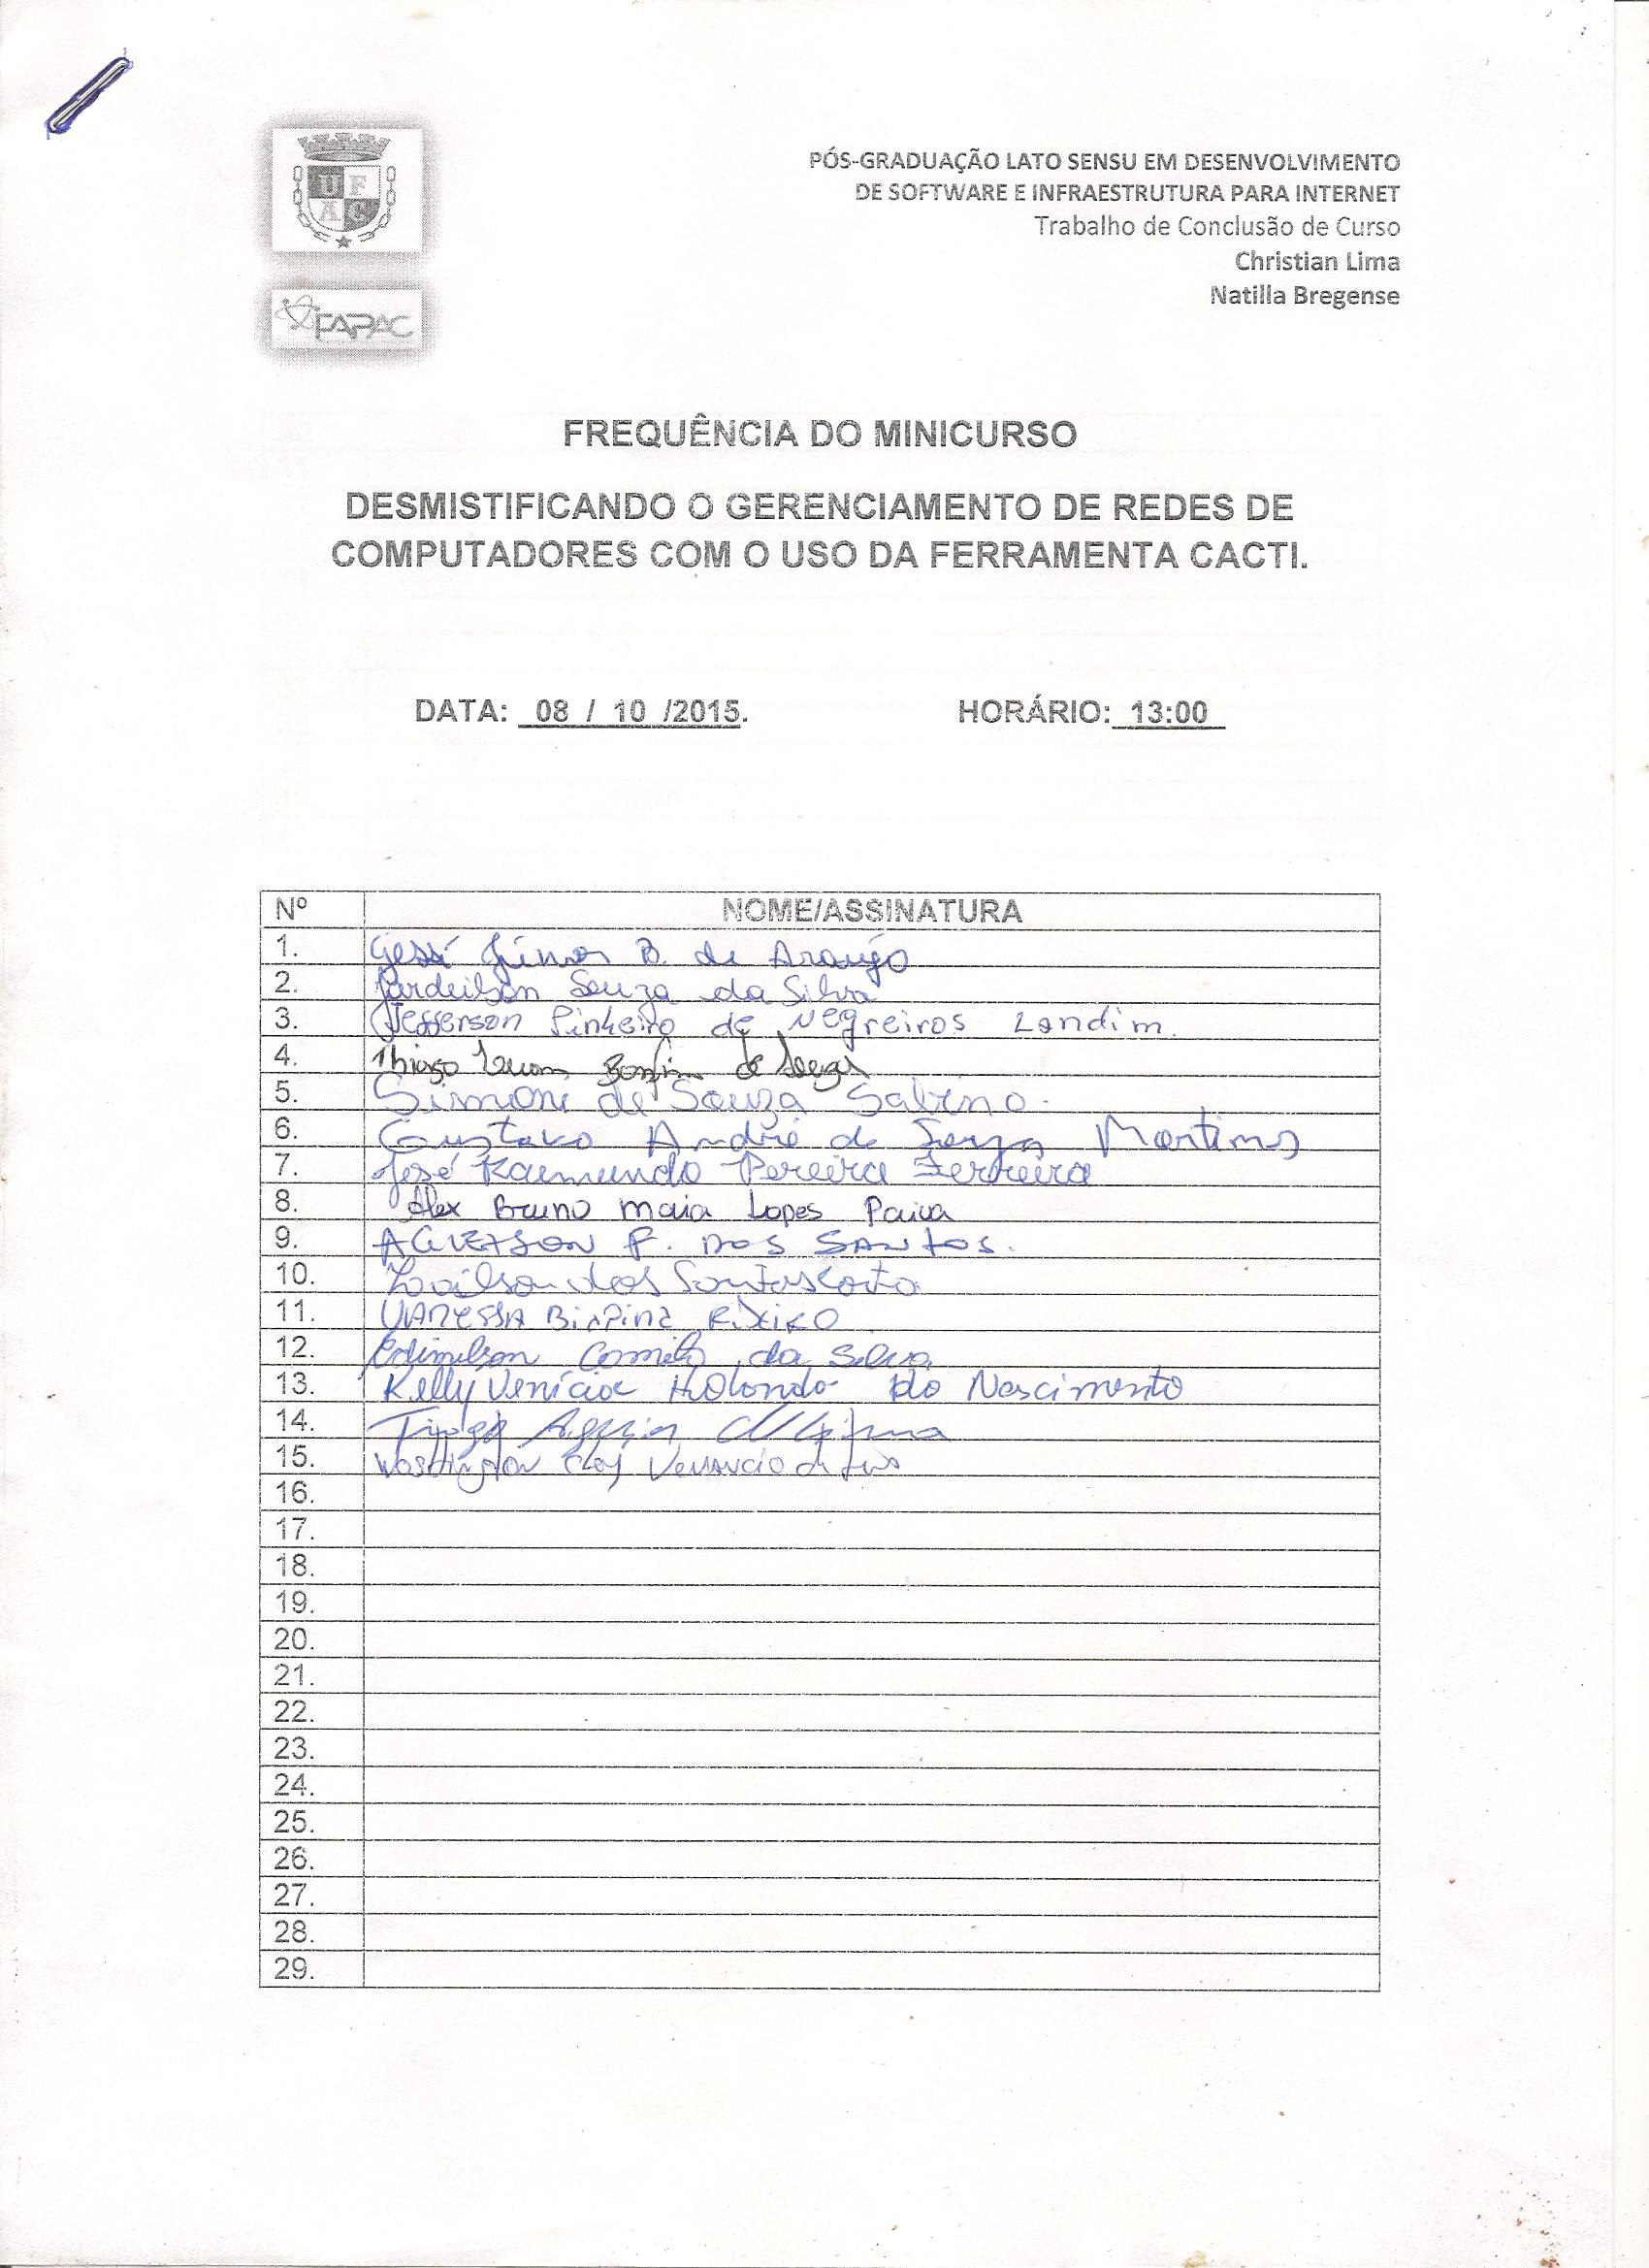 UFAC
PÓS-GRADUAÇÃO LATO SENSU EM DESENVOLVIMENTO
DE SOFTWARE E INFRAESTRUTURA PARA INTERNET
Trabalho de Conclusão de Curso
Christian Lima
Natilla Bregense
FAPAC
FREQUÊNCIA DO MINICURSO
DESMISTIFICANDO O GERENCIAMENTO DE REDES DE
COMPUTADORES COM O USO DA FERRAMENTA CACTI.
DATA: 08 / 10 /2015. HORÁRIO: 13:00
Nº NOME/ASSINATURA
1. Gessí Júnior B. de Araujo
2. Jardeilson Souza da Silva
3. Jefferson Pinheiro de Negreiros Landim.
4. Thiago Bonfim de Souza
5. Simione de Souza Sabino.
6. Gustavo André de Souza Martins
7. José Raimundo Pereira Ferreira
8. Alex Bruno Maia Lopes Paiva
9. F. DOS SANTOS.
10. dos Santos Costa
11. VANESSA
12. Edimilson da Silva
13. Kelly do Nascimento
14.
15. Washington
16.
17.
18.
19.
20.
21.
22.
23.
24.
25.
26.
27.
28.
29.